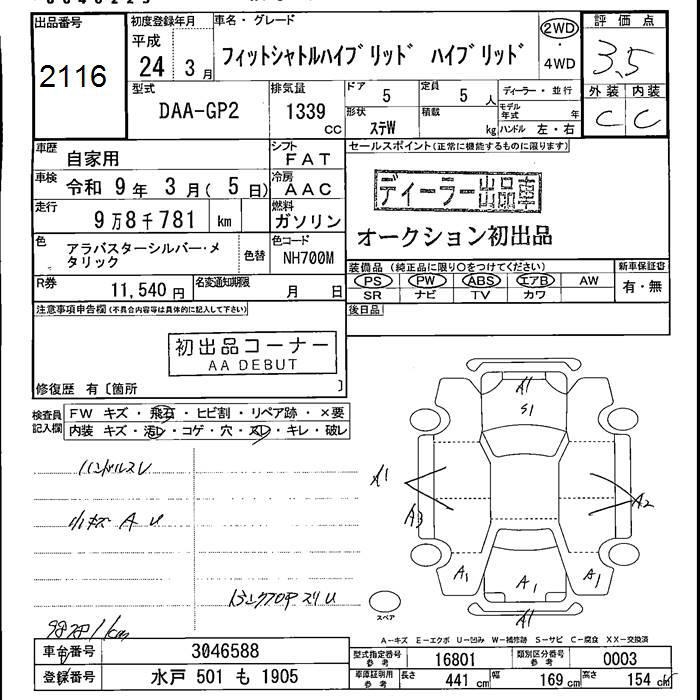 出品番号
2116
初度登録年月
平成
24 3月
車名・グレード
フィットシャトルハイブリッド ハイブリッド
2WD
・
4WD
評価点
3.5
外装 内装
C C
型式
DAA-GP2
排気量
1339
cc
ドア
5
定員
5 人
形状
ステW
積載
kg
ディーラー・並行
モデル年式 年
ハンドル 左・右
車歴
自家用
シフト
FAT
車検
令和 9年 3月( 5日)
冷房
AAC
走行
9万8千781 km
燃料
ガソリン
色
アラバスターシルバー・メタリック
色替
色コード
NH700M
R券
11,540 円
名変通知期限
月 日
セールスポイント(正常に機能するものに限ります)
ディーラー出品車
オークション初出品
装備品(純正品に限り○をつけてください)
PS PW ABS エアB AW
SR ナビ TV カワ
新車保証書
有・無
後日品
注意事項申告欄(不具合内容等は具体的に記入して下さい)
初出品コーナー
AA DEBUT
修復歴 有〔箇所 〕
検査員記入欄
FW キズ・飛石・ヒビ割・リペア跡・×要
内装 キズ・汚レ・コゲ・穴・スレ・キレ・破レ
ハンドルスレ
小キズ A U
A1
S1
A1
A3
A2
A1
A1
A1
A1
スペア
A-キズ E-エクボ U-凹み W-補修跡 S-サビ C-腐食 XX-交換済
車台番号
3046588
登録番号
水戸 501 も 1905
型式指定番号
参考
16801
類別区分番号
参考
0003
車庫証明用
参考
長さ 441 cm
幅 169 cm
高さ 154 cm